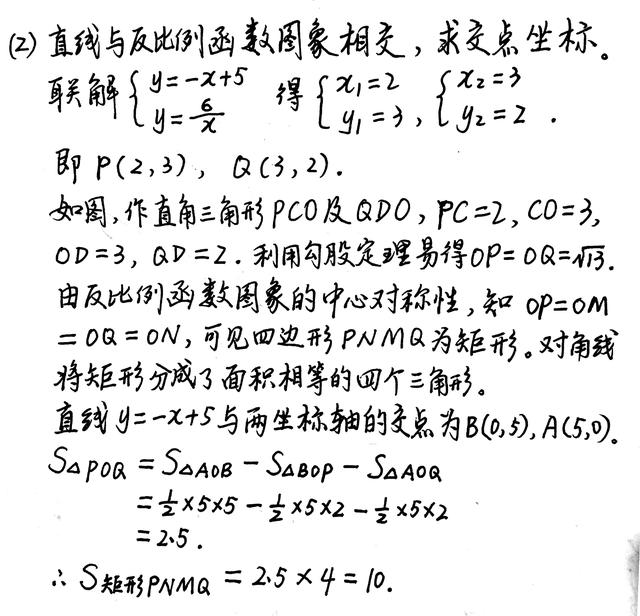 (2) 直线与反比例函数图象相交，求交点坐标。
联解{y=-x+5 y=6/x 得{x₁=2 y₁=3，{x₂=3 y₂=2．
即 P(2,3)，Q(3,2)．
如图，作直角三角形PCO及QDO，PC=2，CO=3，
OD=3，QD=2．利用勾股定理易得OP=OQ=√13．
由反比例函数图象的中心对称性，知 OP=OM
=OQ=ON，可见四边形PNMQ为矩形。对角线
将矩形分成了面积相等的四个三角形。
直线y=-x+5与两坐标轴的交点为B(0,5)，A(5,0)．
S△POQ = S△AOB - S△BOP - S△AOQ
=½×5×5 - ½×5×2 - ½×5×2
=2.5．
∴ S矩形PNMQ = 2.5×4=10．